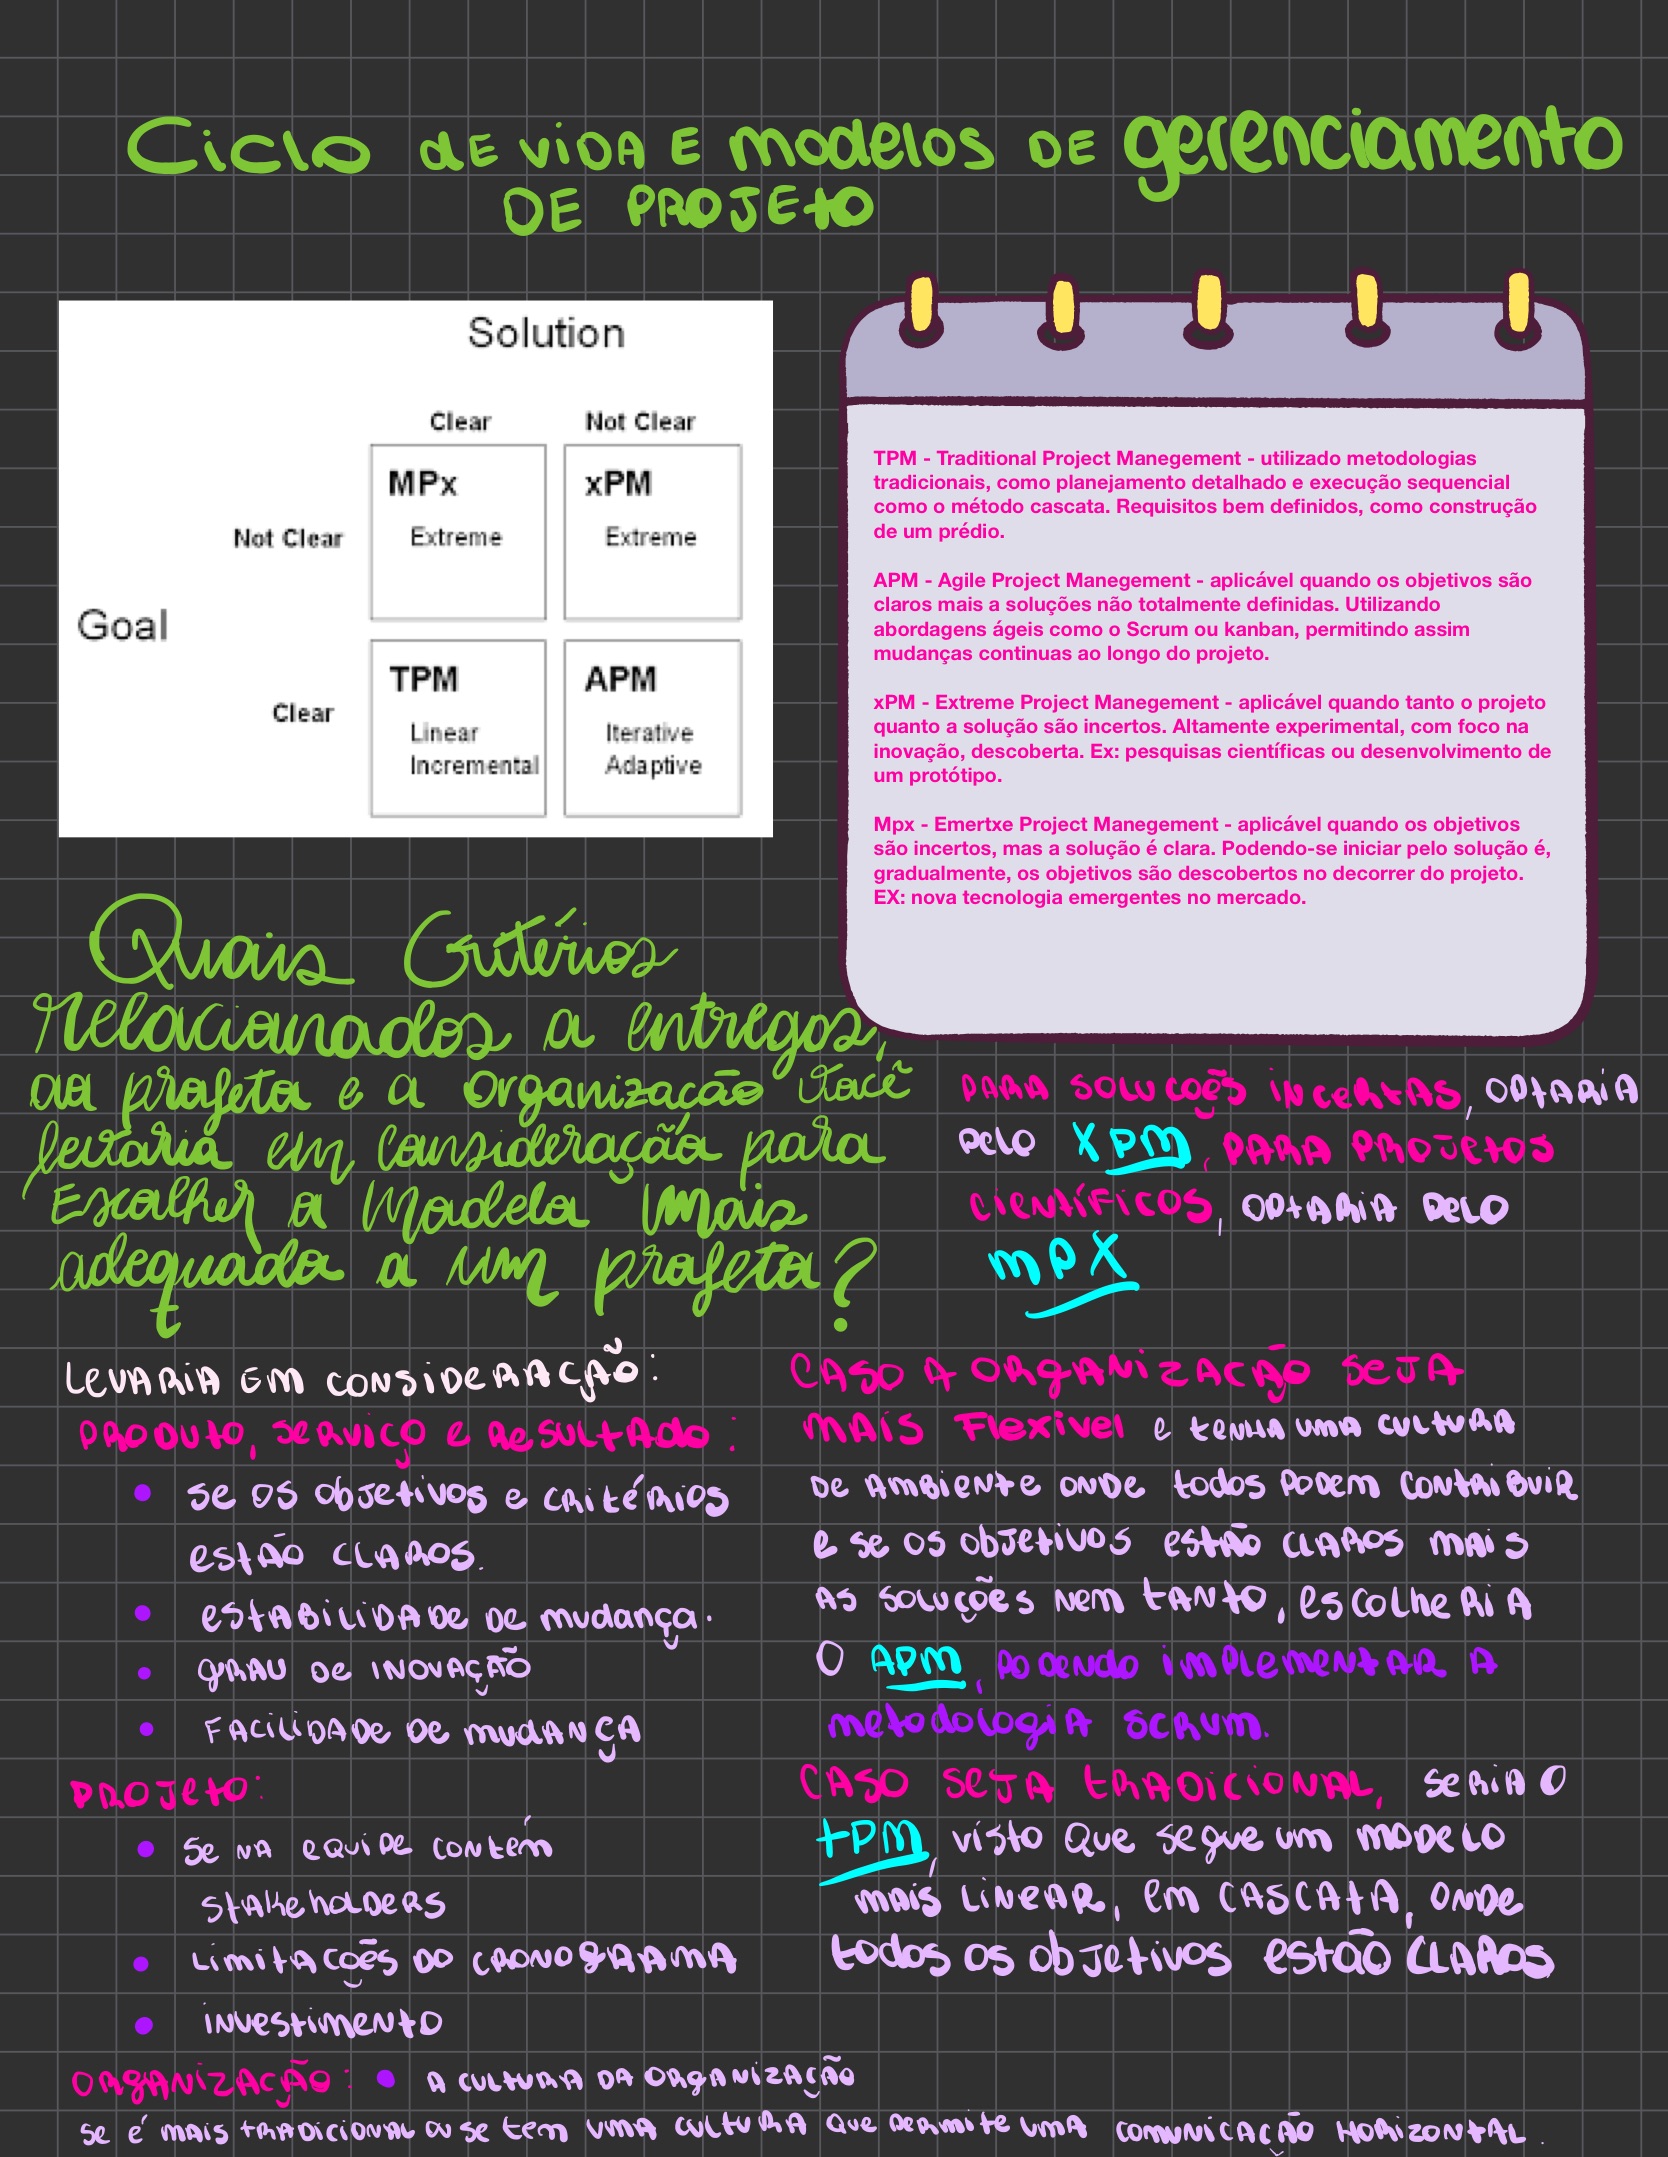 Ciclo de vida e modelos de gerenciamento
de projeto
Solution
Clear
Not Clear
MPx
xPM
Not Clear
Extreme
Extreme
Goal
TPM
APM
Clear
Linear
Iterative
Incremental
Adaptive
TPM - Traditional Project Manegement - utilizado metodologias
tradicionais, como planejamento detalhado e execução sequencial
como o método cascata. Requisitos bem definidos, como construção
de um prédio.
APM - Agile Project Manegement - aplicável quando os objetivos são
claros mais a soluções não totalmente definidas. Utilizando
abordagens ágeis como o Scrum ou kanban, permitindo assim
mudanças continuas ao longo do projeto.
xPM - Extreme Project Manegement - aplicável quando tanto o projeto
quanto a solução são incertos. Altamente experimental, com foco na
inovação, descoberta. Ex: pesquisas científicas ou desenvolvimento de
um protótipo.
Mpx - Emertxe Project Manegement - aplicável quando os objetivos
são incertos, mas a solução é clara. Podendo-se iniciar pelo solução é,
gradualmente, os objetivos são descobertos no decorrer do projeto.
EX: nova tecnologia emergentes no mercado.
Quais Critérios
relacionados a entregos,
ao projeto e a organização você
levaria em consideração para
Escolher o Modelo mais
adequado a um projeto?
Levaria em consideração:
Produto, serviço e resultado:
• se os objetivos e critérios
estão claros.
• estabilidade de mudança.
• grau de inovação
• Facilidade de mudança
Projeto:
• Se na equipe contém
stakeholders
• Limitações do cronograma
• investimento
Organização: • A cultura da organização
se é mais tradicional ou se tem uma cultura que permite uma comunicação horizontal.
Para soluções incertas, optaria
pelo XPM, para projetos
científicos, optaria pelo
mpX
Caso a organização seja
mais Flexivel e tenha uma cultura
de ambiente onde todos podem contribuir
e se os objetivos estão claros mais
as soluções nem tanto, escolheria
o APM, podendo implementar a
metodologia scrum.
Caso seja tradicional, seria o
tPM, visto que segue um modelo
mais linear, em cascata, onde
todos os objetivos estão claros